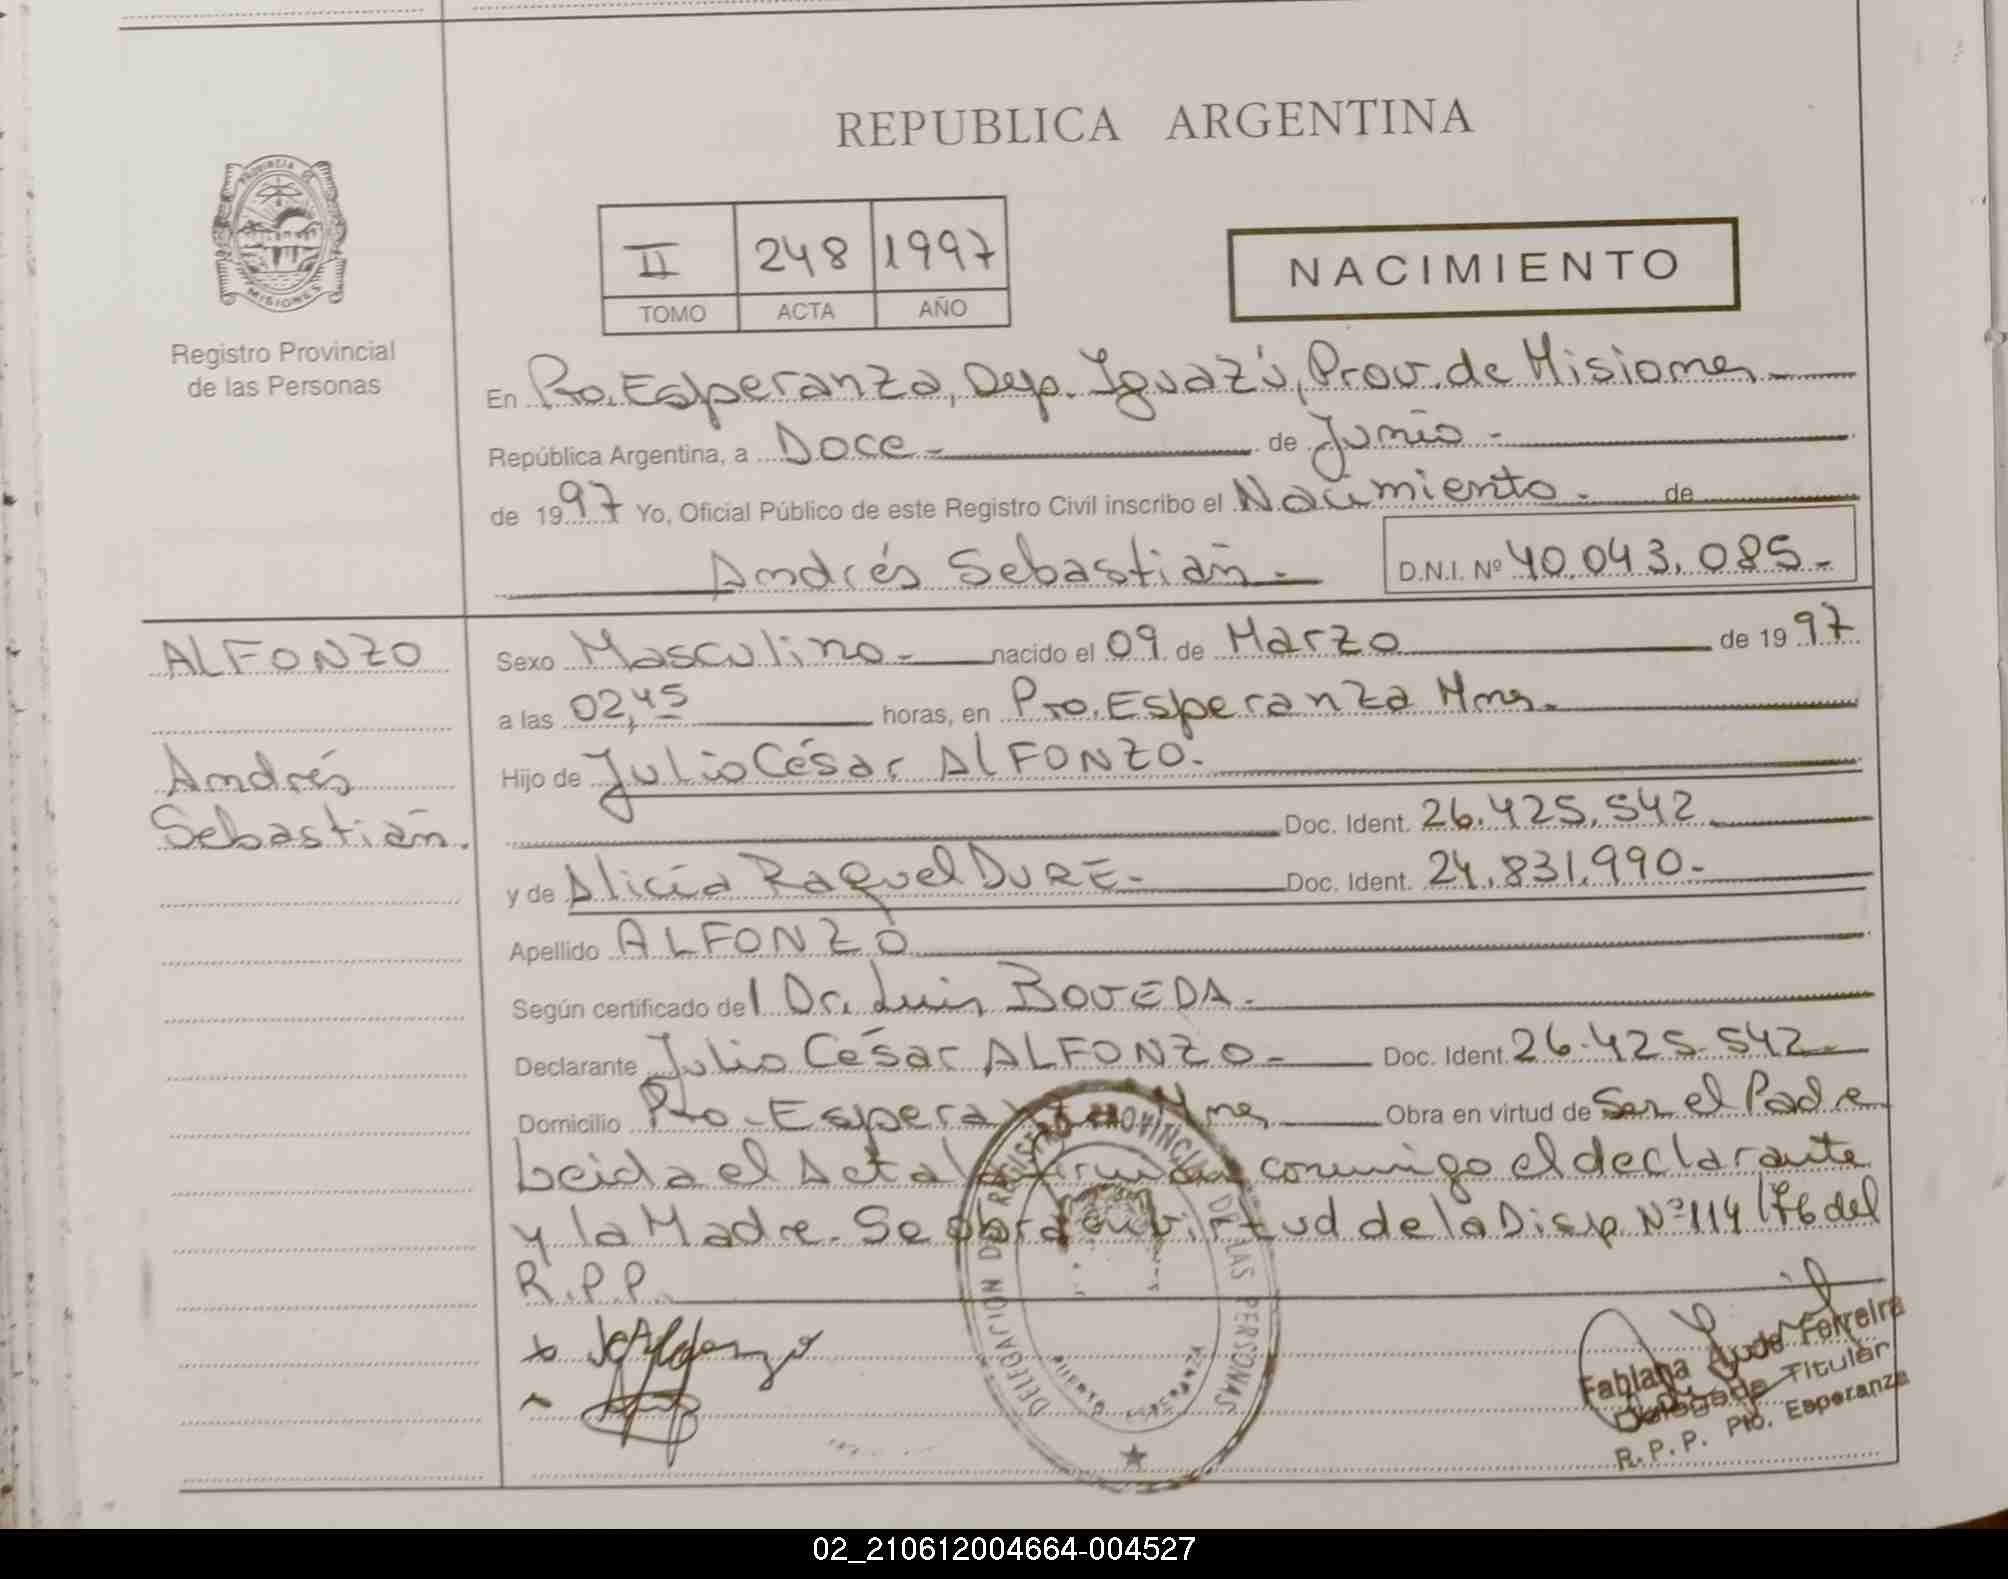 REPUBLICA ARGENTINA
PROVINCIA DE MISIONES
Registro Provincial
de las Personas
II 248 1997
TOMO ACTA AÑO
NACIMIENTO
En Pto. Esperanza, Dep. Iguazú, Prov. de Misiones -
República Argentina, a Doce - de Junio -
de 1997 Yo, Oficial Público de este Registro Civil inscribo el Nacimiento - de
Andrés Sebastián - D.N.I. Nº 40.043.085 -
ALFONZO
Andrés
Sebastián.
Sexo Masculino - nacido el 09 de Marzo de 1997
a las 02,45 horas, en Pto. Esperanza Mnes.
Hijo de Julio César ALFONZO.
Doc. Ident. 26.425.542
y de Alicia Raquel DURE - Doc. Ident. 24.831.990 -
Apellido ALFONZO
Según certificado del Dr. Luis BOVEDA -
Declarante Julio César ALFONZO - Doc. Ident. 26.425.542 -
Domicilio Pto. Esperanza Mnes Obra en virtud de Ser el Padre
Leida el Acta la firman conmigo el declarante
y la Madre. Se obra en virtud de la Disp. Nº 114/76 del
R.P.P.
DELEGACION DEL REGISTRO PROVINCIAL DE LAS PERSONAS
PUERTO ESPERANZA
Ferreira
Fabiana
Delegada Titular
R.P.P. Pto. Esperanza
02_210612004664-004527